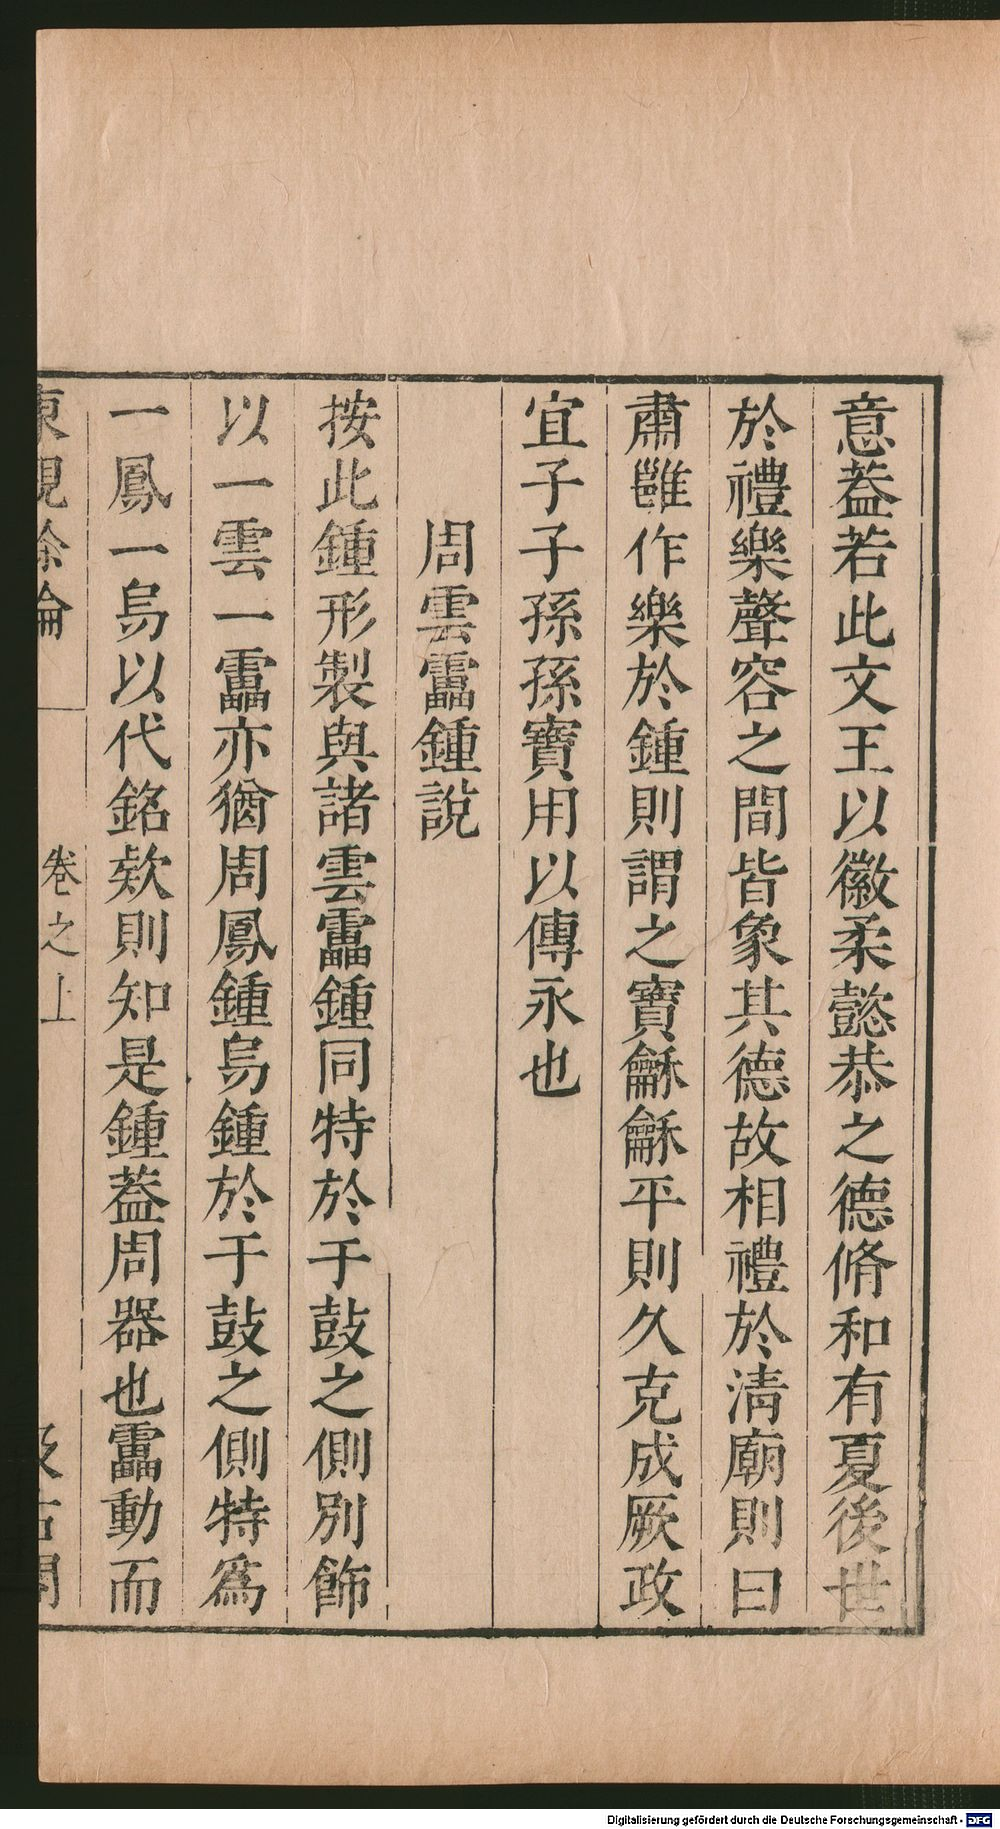 意葢若此文王以徽柔懿恭之德脩和有夏後世
於禮樂聲容之間皆象其德故相禮於清廟則曰
肅雝作樂於鍾則謂之寶龢龢平則久克成厥政
宜子子孫孫寶用以傳永也
周雲靁鍾說
按此鍾形製與諸雲靁鍾同特於于鼓之側別飾
以一雲一靁亦猶周鳳鍾舄鍾於于鼓之側特爲
一鳳一舄以代銘欵則知是鍾葢周器也靁動而
東觀餘論
卷之上
汲古閣
Digitalisierung gefördert durch die Deutsche Forschungsgemeinschaft - DFG